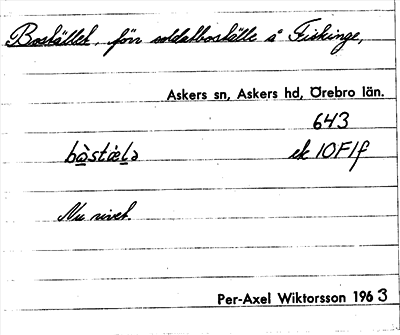 Boställek, förr soldatboställe å Friskinge,
Askers sn, Askers hd, Örebro län.
643
bòstɑ̀lə ek 10F1f
Nu rivet.
Per-Axel Wiktorsson 1963